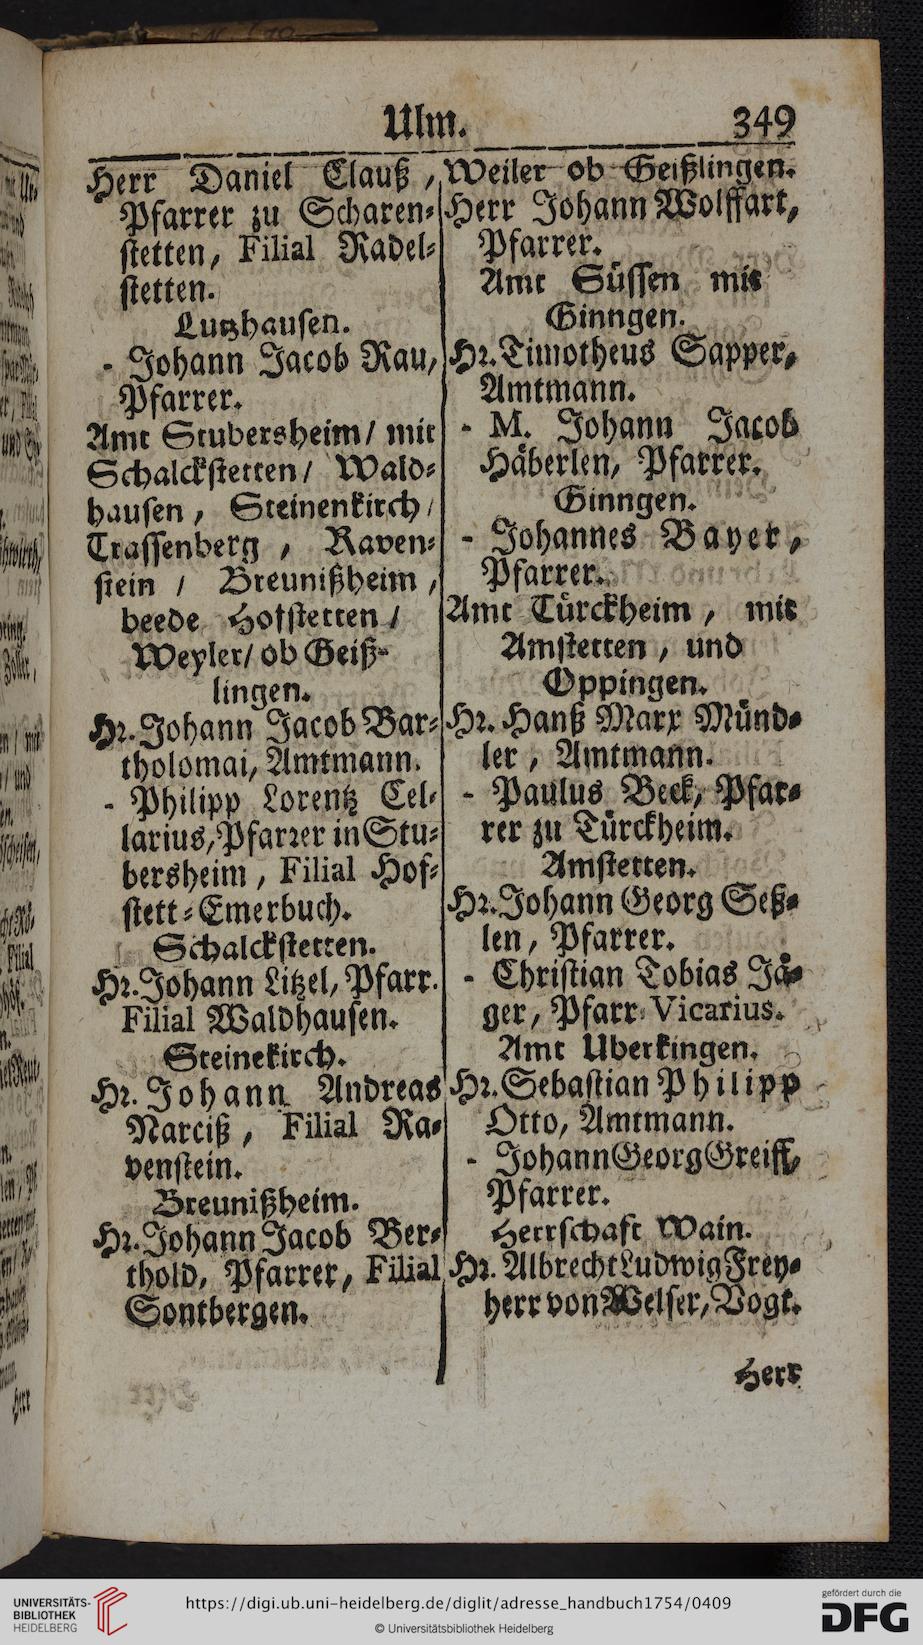 Ulm. 349
Herr Daniel Clauß,
Pfarrer zu Scharen-
stetten, Filial Radel-
stetten.
Lutzhausen.
- Johann Jacob Rau,
Pfarrer.
Amt Stubersheim/ mit
Schalckstetten/ Wald-
hausen, Steinenkirch/
Trassenberg, Raven-
stein / Breunißheim,
beede Hofstetten /
Weyler/ ob Geiß-
lingen.
Hr. Johann Jacob Bar-
tholomai, Amtmann.
- Philipp Lorentz Cel-
larius, Pfarrer in Stu-
bersheim, Filial Hof-
stett-Emerbuch.
Schalckstetten.
Hr. Johann Litzel, Pfarr.
Filial Waldhausen.
Steinekirch.
Hr. Johann Andreas
Narciß, Filial Ra-
venstein.
Breunißheim.
Hr. Johann Jacob Ber-
thold, Pfarrer, Filial
Sontbergen.
Weiler ob Geißlingen.
Herr Johann Wolffart,
Pfarrer.
Amt Süssen mit
Ginngen.
Hr. Timotheus Sapper,
Amtmann.
- M. Johann Jacob
Häberlen, Pfarrer.
Ginngen.
- Johannes Bayer,
Pfarrer.
Amt Türckheim, mit
Amstetten, und
Oppingen.
Hr. Hanß Marx Münd-
ler, Amtmann.
- Paulus Beck, Pfar-
rer zu Türckheim.
Amstetten.
Hr. Johann Georg Seß-
len, Pfarrer.
- Christian Tobias Jä-
ger, Pfarr-Vicarius.
Amt Uberkingen.
Hr. Sebastian Philipp
Otto, Amtmann.
- Johann Georg Greiff,
Pfarrer.
Herrschaft Wain.
Hr. Albrecht Ludwig Frey-
herr von Welser, Vogt.
Herr
UNIVERSITÄTS-
BIBLIOTHEK
HEIDELBERG
https://digi.ub.uni-heidelberg.de/diglit/adresse_handbuch1754/0409
© Universitätsbibliothek Heidelberg
gefördert durch die
DFG